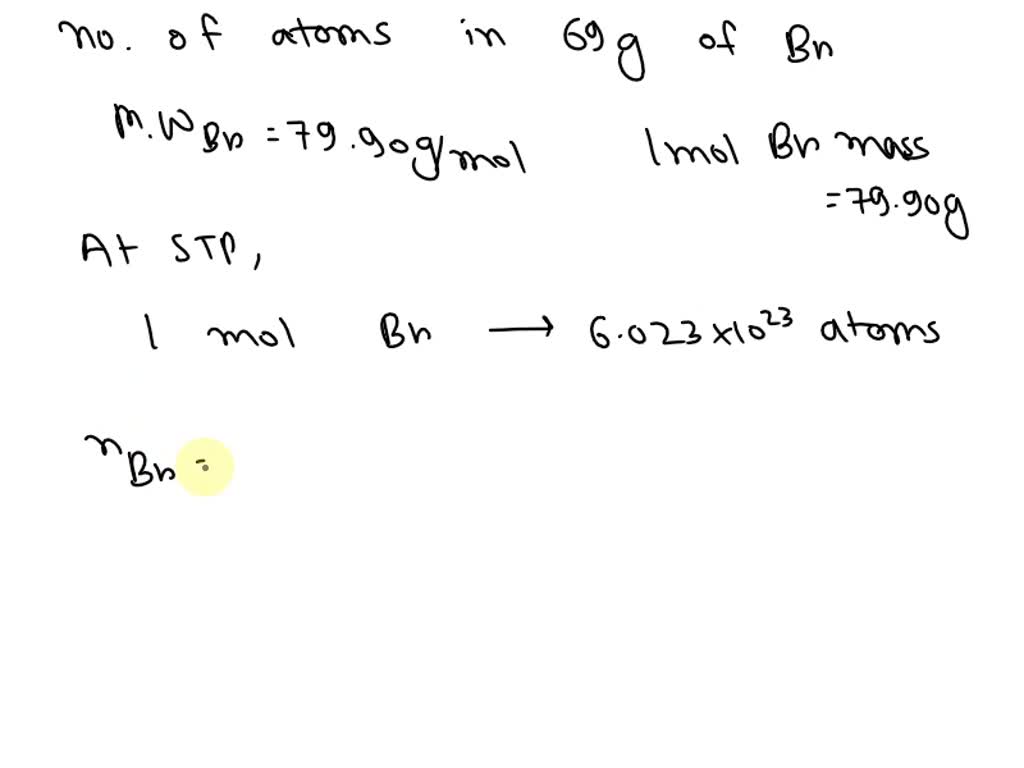 no. of atoms in 69g of Br
M.W Br = 79.90g/mol 1mol Br mass
= 79.90g
At STP,
1 mol Br → 6.023×10²³ atoms
n Br =